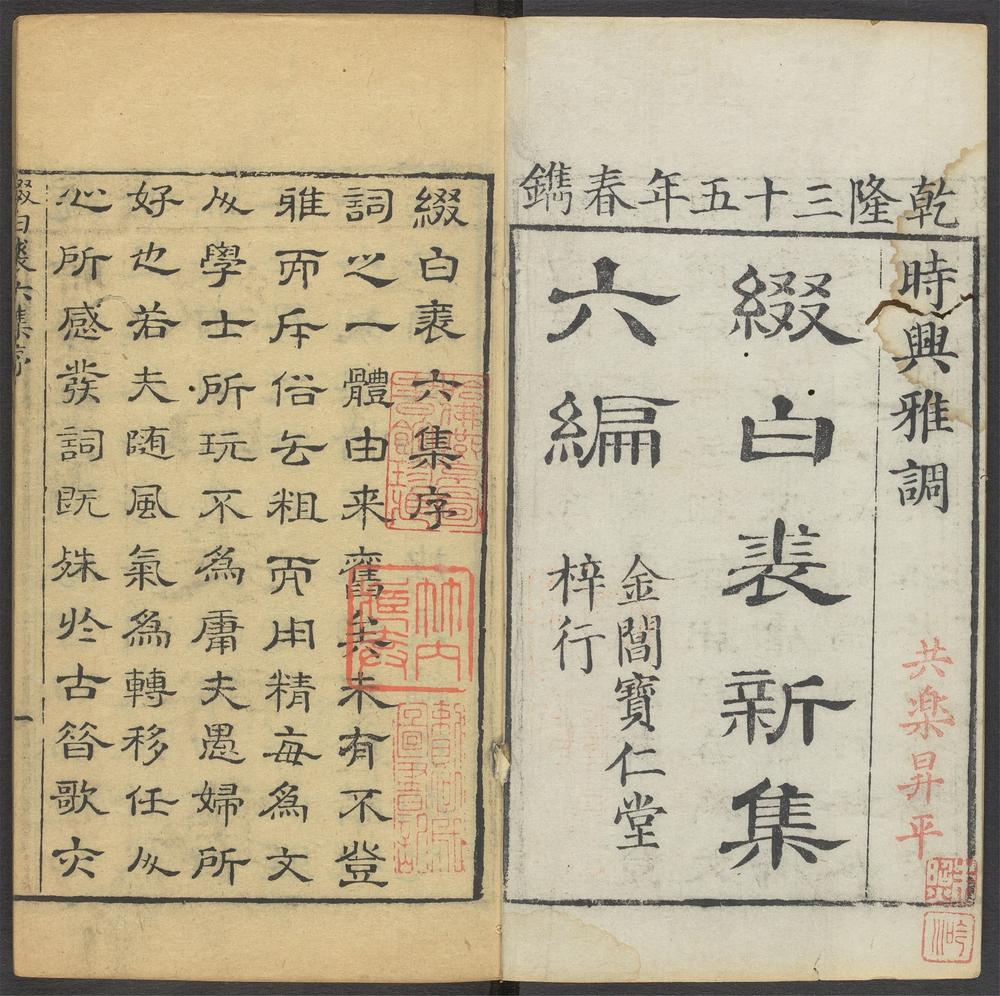 乾隆三十五年春鐫
時興雅調
共楽昇平
綴白裘新集
六編
金閶寶仁堂
梓行
綴白裘六集序
詞之一體由来舊矣未有不登
雅而斥俗去粗而用精每為文
人學士所玩不為庸夫愚婦所
好也若夫随風氣為轉移任人
心所感發詞既殊於古昔歌亦
綴白裘六集序
一